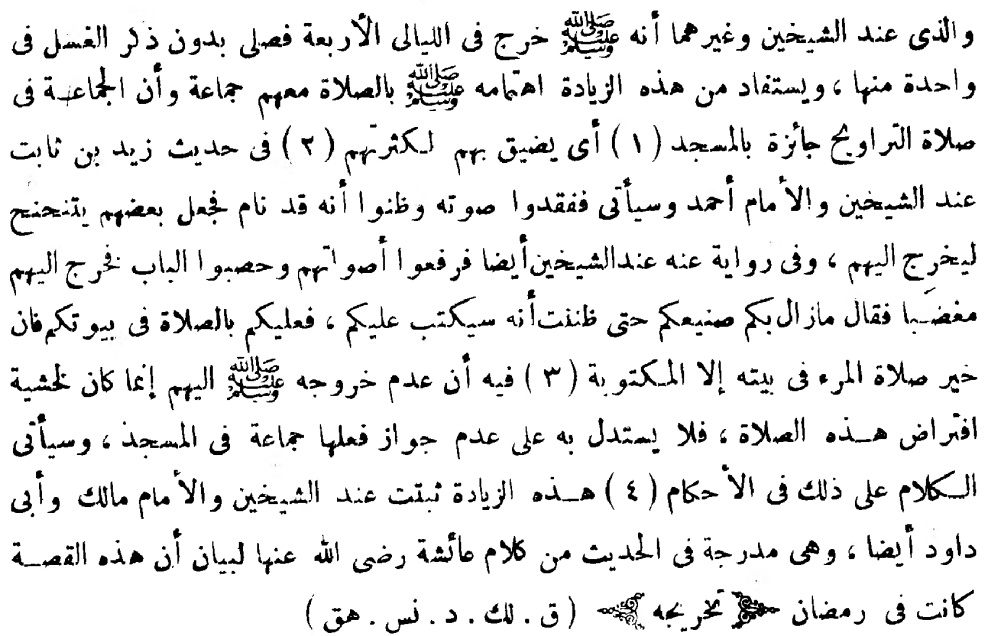 والذى عند الشيخين وغيرهما أنه ﷺ خرج فى الليالى الأربعة فصلى بدون ذكر الغسل فى
واحدة منها ، ويستفاد من هذه الزيادة اهتمامه ﷺ بالصلاة معهم جماعة وأن الجماعة فى
صلاة التراويح جائزة بالمسجد (١) أى يضيق بهم لكثرتهم (٢) فى حديث زيد بن ثابت
عند الشيخين والأمام أحمد وسيأتى ففقدوا صوته وظنوا أنه قد نام فجعل بعضهم يتنحنح
ليخرج اليهم ، وفى رواية عنه عندالشيخين أيضا فرفعوا أصواتهم وحصبوا الباب فخرج اليهم
مغضبا فقال مازال بكم صنيعكم حتى ظننت أنه سيكتب عليكم ، فعليكم بالصلاة فى بيوتكم فان
خير صلاة المرء فى بيته إلا المكتوبة (٣) فيه أن عدم خروجه ﷺ اليهم إنما كان لخشية
افتراض هذه الصلاة ، فلا يستدل به على عدم جواز فعلها جماعة فى المسجد ، وسيأتى
الكلام على ذلك فى الأحكام (٤) هذه الزيادة ثبتت عند الشيخين والأمام مالك وأبى
داود أيضا ، وهى مدرجة فى الحديث من كلام عائشة رضى الله عنها لبيان أن هذه القصة
كانت فى رمضان تخريجه (ق . لك . د . نس . هق)